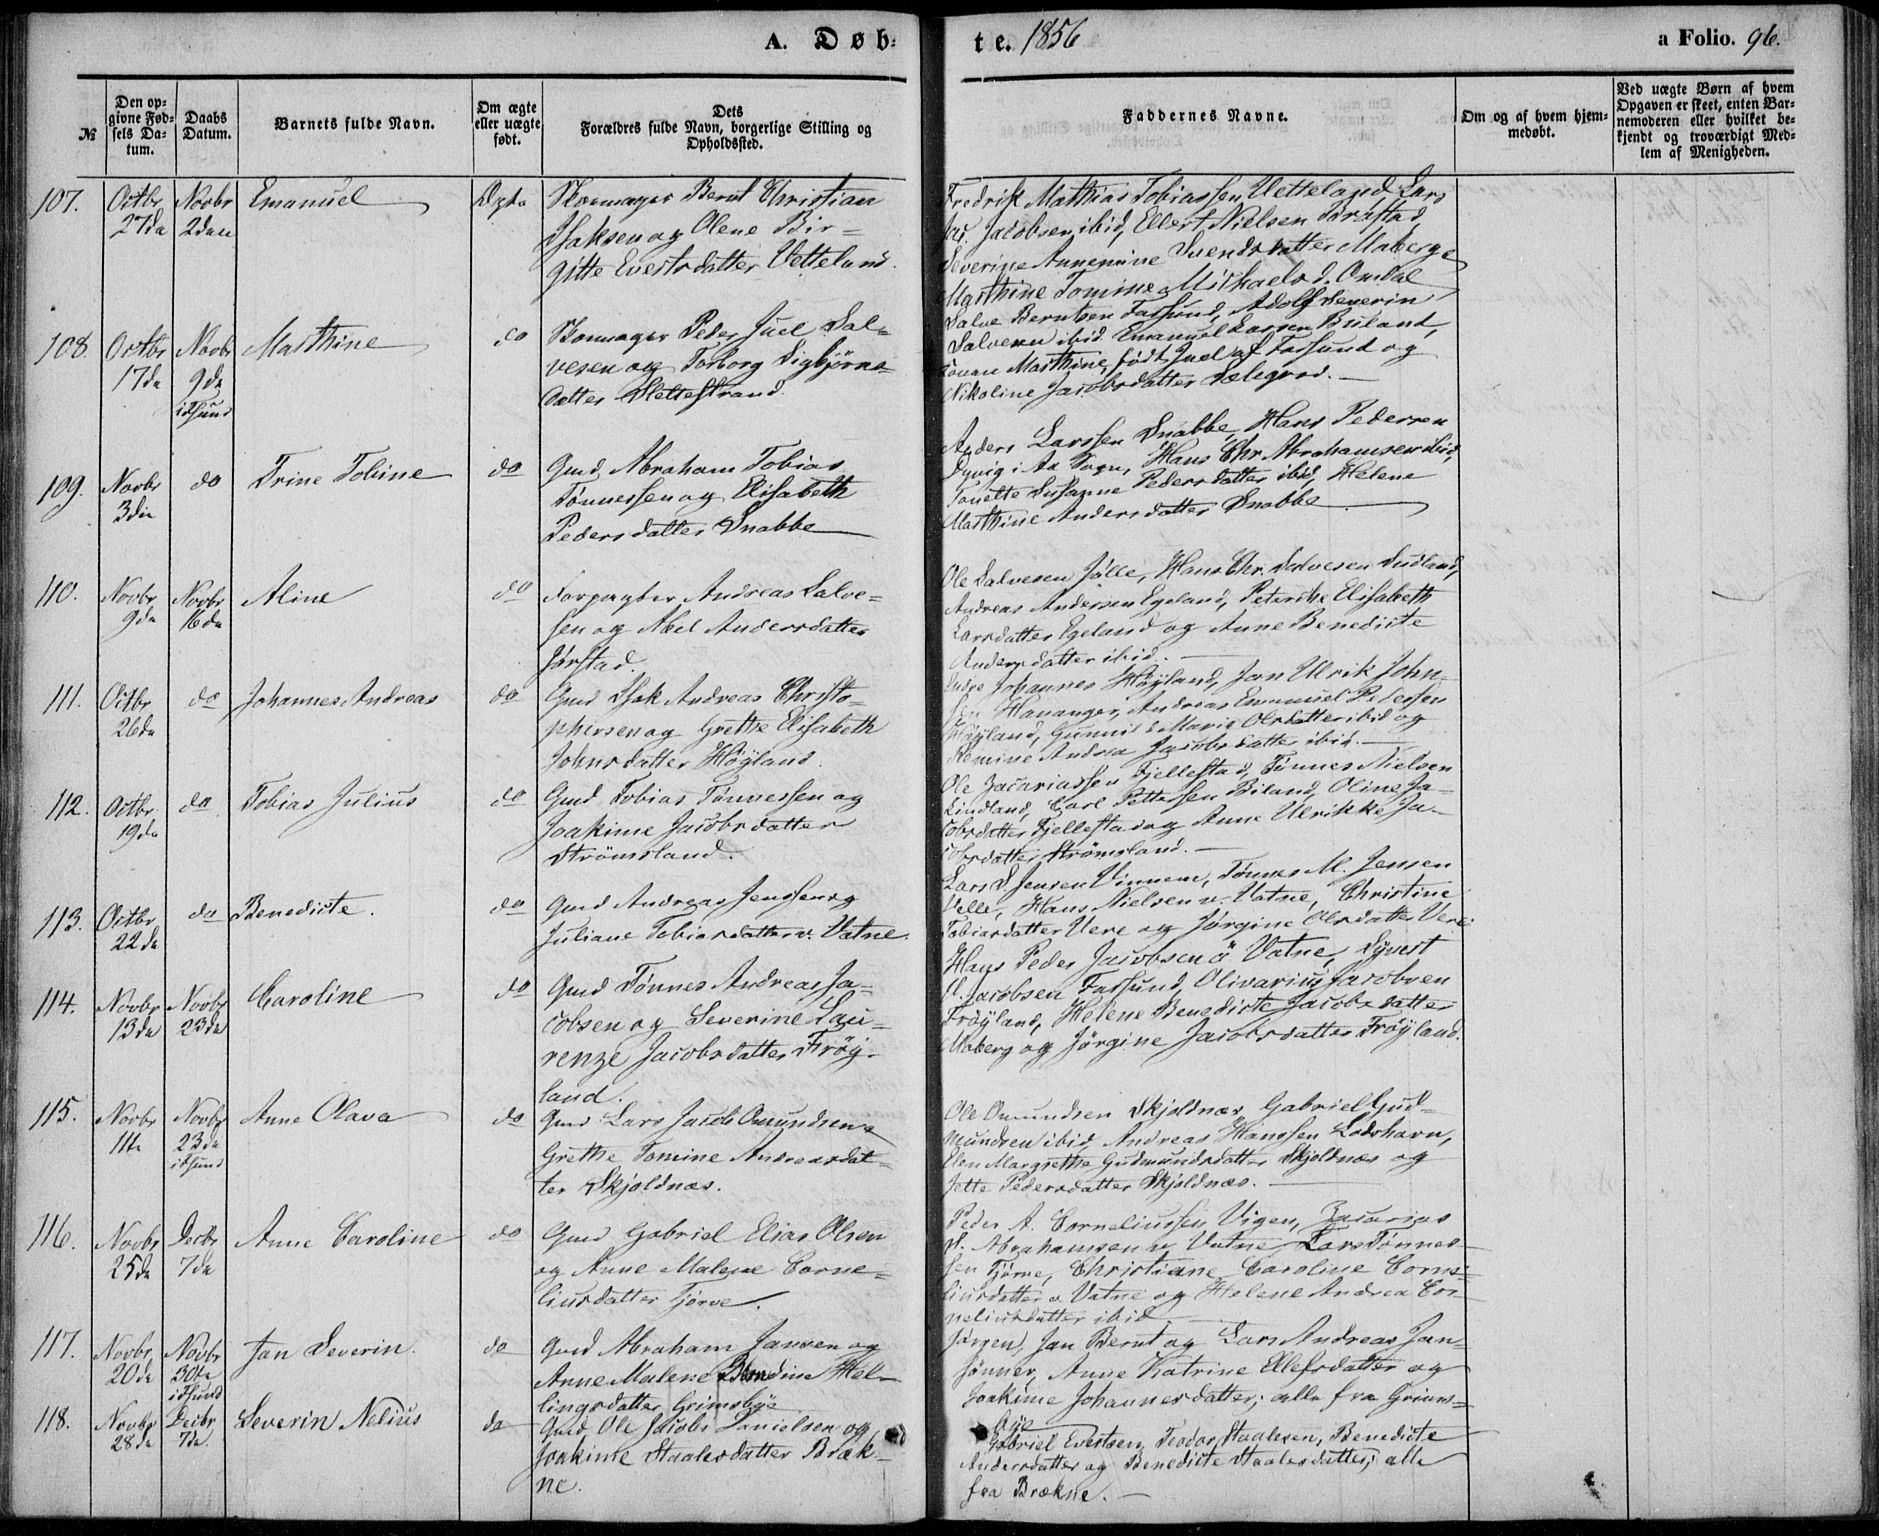 A. Døb-
te. 1856
a Folio. 96.
№
Den op-
givne Fød-
sels Da-
tum.
Daabs
Datum.
Barnets fulde Navn.
Om ægte
eller uægte
født.
Dets
Forældres fulde Navn, borgerlige Stilling og
Opholdssted.
Faddernes Navne.
Om og af hvem hjem-
medøbt.
Ved uægte Børn af hvem
Opgaven er skeet, enten Bar-
nemoderen eller hvilket be-
kjendt og troværdigt Med-
lem af Menigheden.
107.
Octbr
27de
Novbr
2den
Emanuel
Ægte
Skoemager Bernt Christian
Isaksen og Olene Bir-
gitte Evertsdatter Vetteland.
Fredrik Matthias Tobiassen Vetteland, Lars
Jacobsen ibid, Ellert Nielsen Bråstad,
Severine Annemine Svendsdatter Maberg
Marthine Tomine Mikhaelsd. Omdal
108.
Octbr
17de
Novbr
9de
idsund
Marthine
do
Skomager Peder Juel Sal-
vesen og Torborg Sigbjørns-
datter Slettestrand.
Salve Berntsen Farsund, Adolf Severin
Salvesen ibid Emanuel Larsen Buland,
Marthine født Juel af Farsund og
Nikoline Jacobsdatter Sælegrod.
109.
Novbr
3die
do
Trine Tobine
do
Gmd. Abraham Tobias
Tønnessen og Elisabeth
Pedersdatter Snabbe
Anders Larssen Snabbe, Hans Pedersen
Dyvig i Aa Sogn, Hans Chr. Abrahamsen ibid,
Tonette Susanne Pedersdatter ibid, Helene
Marthine Andersdatter Snabbe.
110.
Novbr
9de
Novbr
16de
Aline
do
Forpagter Andreas Salve-
sen og Abel Andersdatter
Jørstad.
Ole Salvesen Jølle, Hans Chr. Salvesen Sudland,
Andreas Andersen Egeland, Peterike Elisabeth
Larsdatter Egeland og Anne Benedicte
Andersdatter ibid.
111.
Octbr
26de
do
Johannes Andreas
do
Gmd Isak Andreas Christo-
phersen og Grethe Elisabeth
Johnsdatter Høyland.
Johannes Høyland, Jan Ulrik John-
sen Hananger, Andreas Emanuel Pedersen
Høyland, Gunnild Marie Olsdatter ibid og
Andrea Jacobsdatter ibid.
112.
Octbr
19de
do
Tobias Julius
do
Gmd Tobias Tønnessen og
Joakime Jacobsdatter
Strömsland.
Ole Zacariassen Fjellestad, Tønnes Nielsen
Lindland, Carl Pettersen Biland, Oline Ja-
cobsdatter Fjellestad og Anne Ulrikke Ja-
cobsdatter Strömsland.
113.
Octbr
22de
do
Benedicte.
do
Gmd Andreas Jenssen og
Juliane Tobiasdatter v. Vatne.
Lars S. Jensen Vinnem, Tønnes M. Jensen
Velle, Hans Nielsen v. Vatne, Christine
Tobiasdatter Vere og Jørgine Olsdatter Vere
114.
Novbr
13de
Novbr
23de
Caroline
do
Gmd Tønnes Andreas Ja-
cobsen og Severine Lau-
renze Jacobsdatter Frøy-
land.
Hans Peder Jacobsen ö Vatne, Syvert
Jacobsen Farsund, Olivarius Jacobsen
Frøyland, Helene Benedicte Jacobsdatter
Maberg og Jørgine Jacobsdatter Frøyland.
115.
Novbr
11te
Novbr
23de
idsund
Anne Olava
do
Gmd Lars Jacob Omundsen &
Grethe Tomine Andreasdat-
ter Skjoldnæs.
Ole Omundsen Skjoldnæs, Gabriel Gud-
mundsen ibid, Andreas Hanssen Loshavn,
Elen Margrethe Gudmundsdatter Skjoldnæs og
Jette Pedersdatter Skjoldnæs.
116.
Novbr
25de
Decbr
7de
Anne Caroline
do
Gmd Gabriel Elias Olsen
og Anne Malene Corne-
liusdatter Tjørve.
Peder A. Corneliussen Vigen, Zacarias
S. Abrahamsen v. Vatne Lars Tønnes-
sen Tjørve, Christiane Caroline Corne-
liusdatter v. Vatne og Helene Andrea Cor-
neliusdatter ibid
117.
Novbr
20de
Novbr
30te
idsund
Jan Severin.
do
Gmd Abraham Jansen og
Anne Malene Berndine Hel-
lingsdatter Grimsbye
Jørgen, Jan Bernt og Lars Andreas Jan-
sønner, Anne Katrine Ellefsdatter og
Joakime Johannesdatter; alle fra Grims-
bye
118.
Novbr
28de
Decbr
7de.
Severin Nelius
do
Gmd. Ole Jacob Danielsen og
Joakime Staalesdatter Bræk-
ne.
Gabriel Evertsen, Teodor Staalesen, Benedicte
Andersdatter og Benedicte Staalesdatter; alle
fra Brækne.